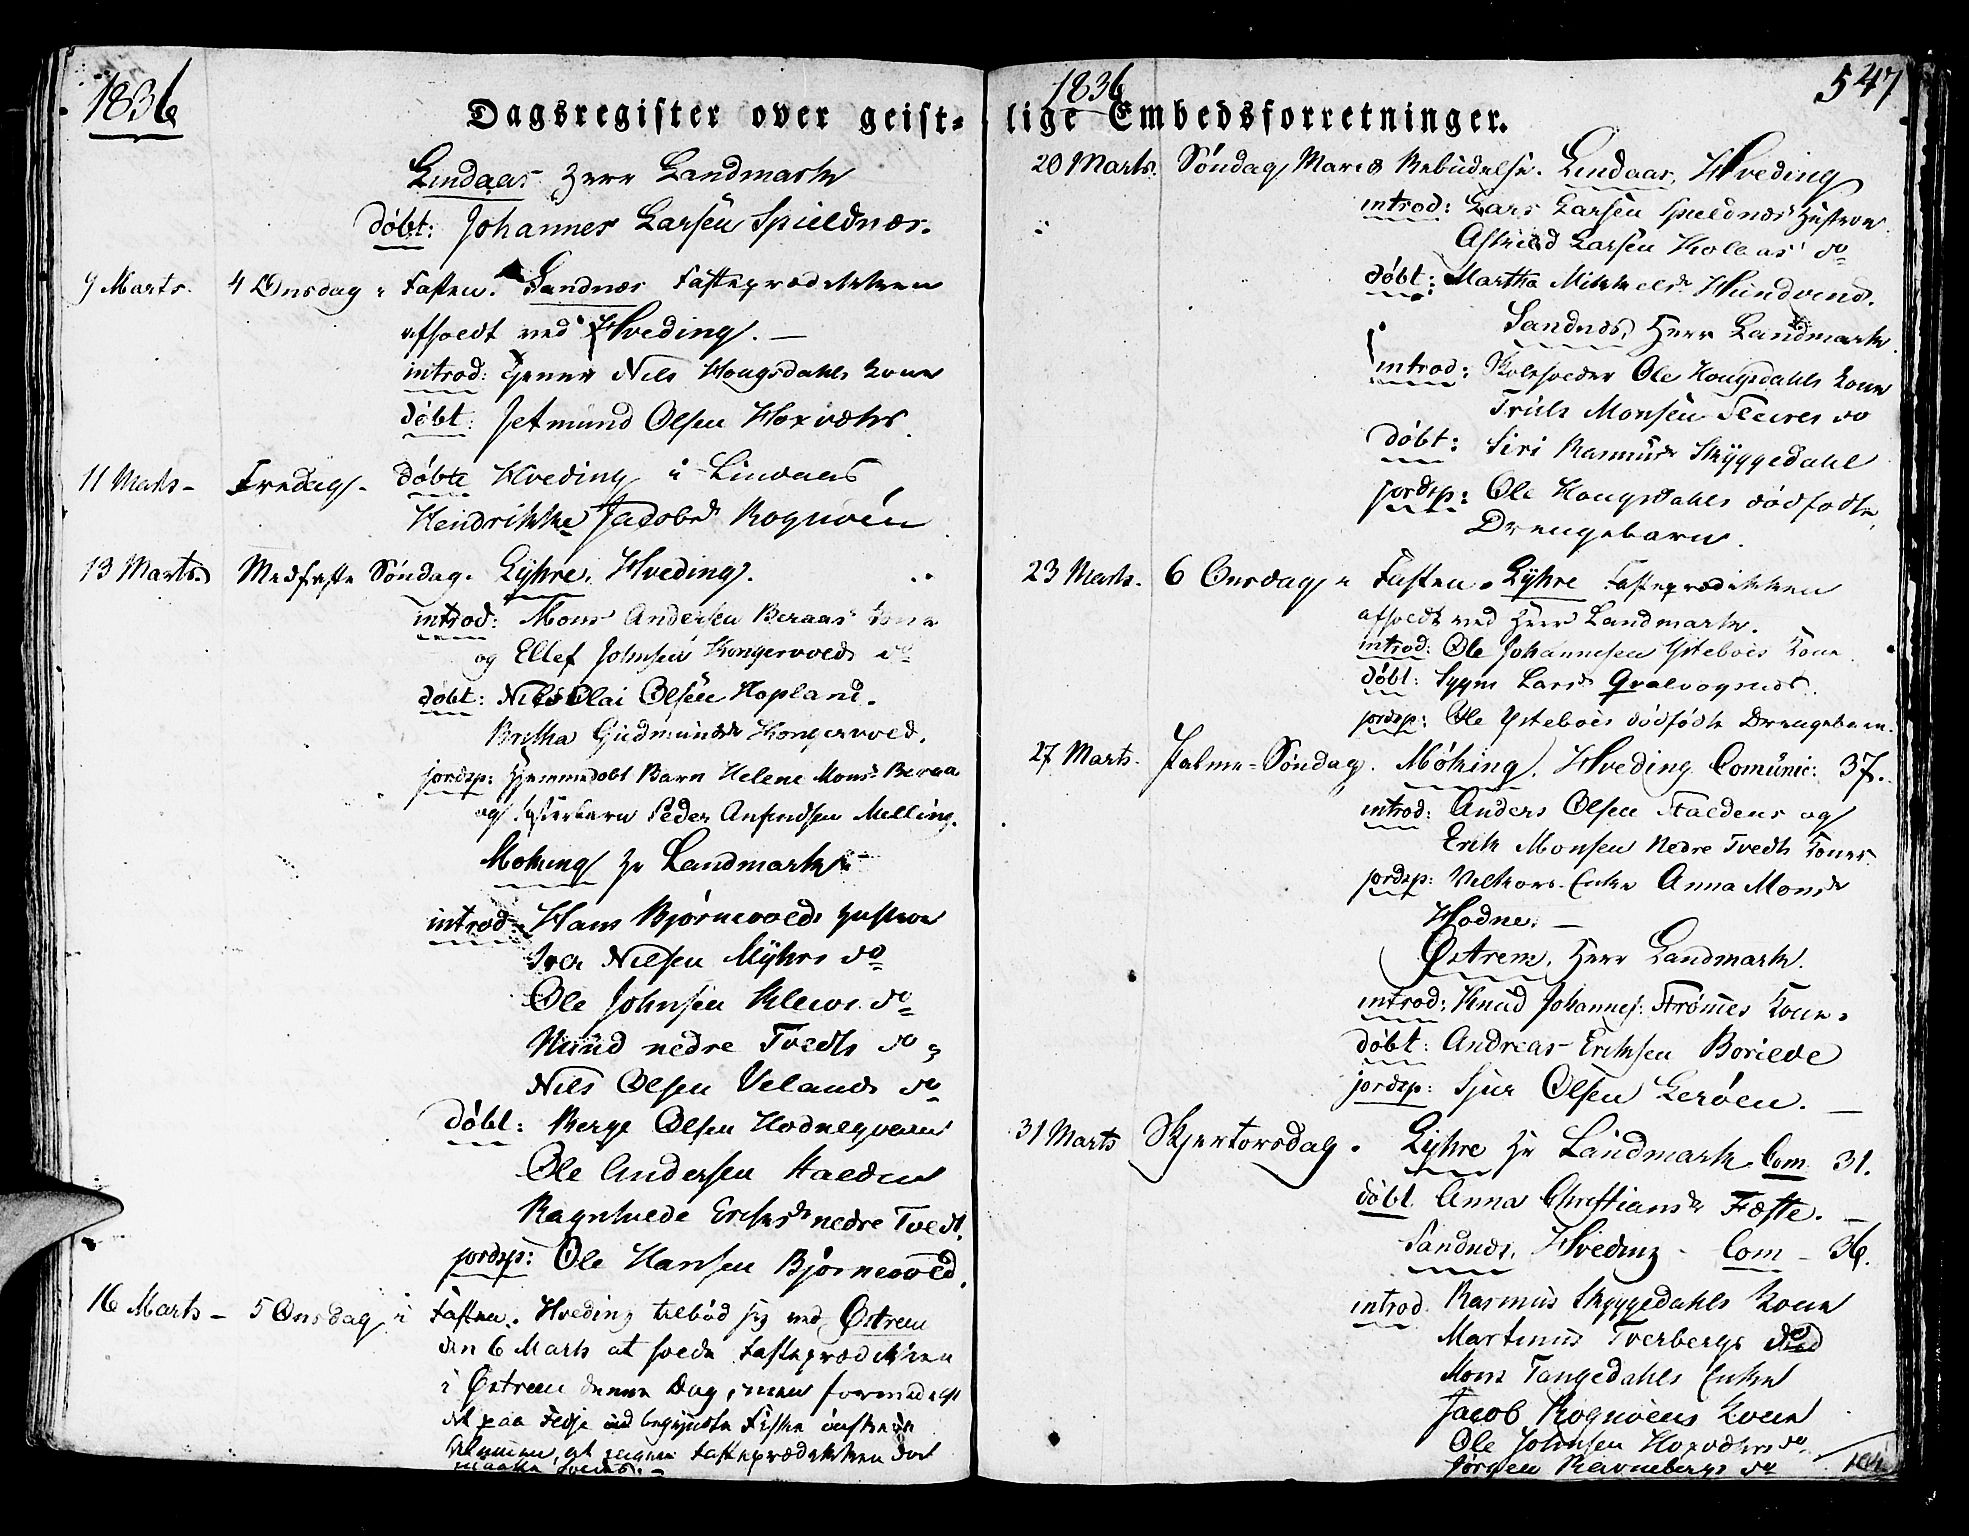 1836
Dagsregister over geist-
Lindaas Herr Landmark
döbt: Johannes Larsen Spieldnæs.
9 Marts. 4 Onsdag i Fasten. Sandnæs Fasteprædikken
afholdt ved Hveding.
introd: Nils Hougsdahls Kone
döbt: Jetmund Olsen
11 Marts - Fredag - döbte Hveding i Lindaas
Hendrikke Jacobsd Rognöen
13 Marts. Medfaste Söndag. Lyhre. Hveding.
introd: Mons Andersen Beraas Kone
og Ellef Johnsen Kongsvold do
döbt: Nils Olai Olsen Hopland.
Britha Gudmundsd
jordsp: Hjemmedöbt Barn Helene Monsd Beraa
og Peder Melling.
Moking Hr Landmark
introd: Hans Björnevolds Hustroe
Iver Nilsen Myhrs do
Ole Johnsen Kleivs do
Knud nedre Tvedts do
Nils Olsen Velands do
döbt: Berge Olsen Hodneqvam
Ole Andersen Stalden
Ragnilde Eriksd nedre Tvedt.
jordsp: Ole Hansen Björnevold.
16 Marts - 5 Onsdag i Fasten. Hveding tilböd sig ved Östrem
den 6 Marts at holde Fasteprædikken
i Östrem denne Dag, men formedelst
det paa Fedje begyndte Fiske önskede
Almuen, at ingen Fasteprædikken der
maatte holdes.
1836
547
lige Embedsforretninger.
20 Marts. Söndag Mariæ Bebudelse. Lindaas, Hveding
introd: Lars Larsen Spieldnæs Hustroe
Larsen Kolaas do
döbt: Martha Mikkelsd Hundvend.
Sandnæs, Herr Landmark
introd: Skoleholder Ole Hougsdahls Kone
Truls Monsen do
döbt: Siri Rasmusd Skyggedahl
jordsp: Ole Hougsdahls dödfödte
Drengebarn.
23 Marts. 6 Onsdag i Fasten. Lyhre Fasteprædikken
afholdt ved Herr Landmark.
introd: Ole Johannesen Ystebøes Kone
döbt: Larsd
jordsp: Ole Ystebøes dödfödte Drengebarn.
27 Marts. Palme-Söndag. Möking. Hveding Comunic: 37.
introd: Anders Olsen Staldens og
Erik Monsen Nedre Tvedts Koner
jordsp: Enke Anna Monsd
Hodne.
Östrem, Herr Landmark.
introd: Knud Johannes: Strömes Kone.
döbt: Andreas Eriksen Borilde
jordsp: Sjur Olsen Leröen.
31 Marts Skjertorsdag. Lyhre Hr Landmark Com 31.
döbt Anna Christiansd Fæste.
Sandnæs, Hveding - Com - 36.
introd Rasmus Skyggedahls Kone
Martinus Tverbergs do
Mons Tangedahls Enke
Jacob Rognöens Kone
Ole Johnsen do
Jörgen Ravnebergs do